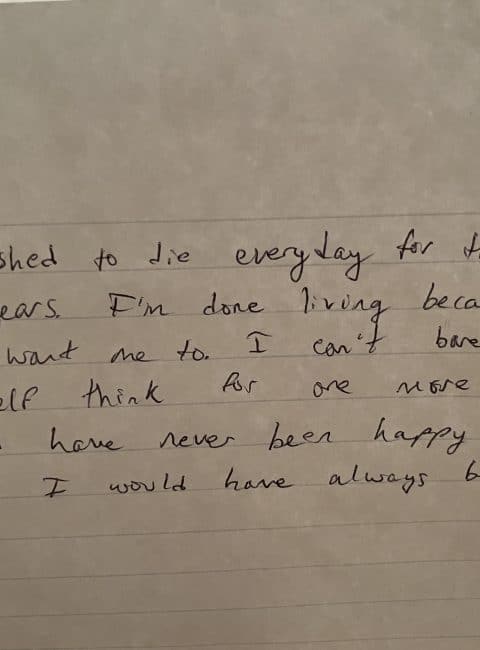 to die everyday for
I'm done living
want me to. I can't
think for one more
have never been happy
I would have always